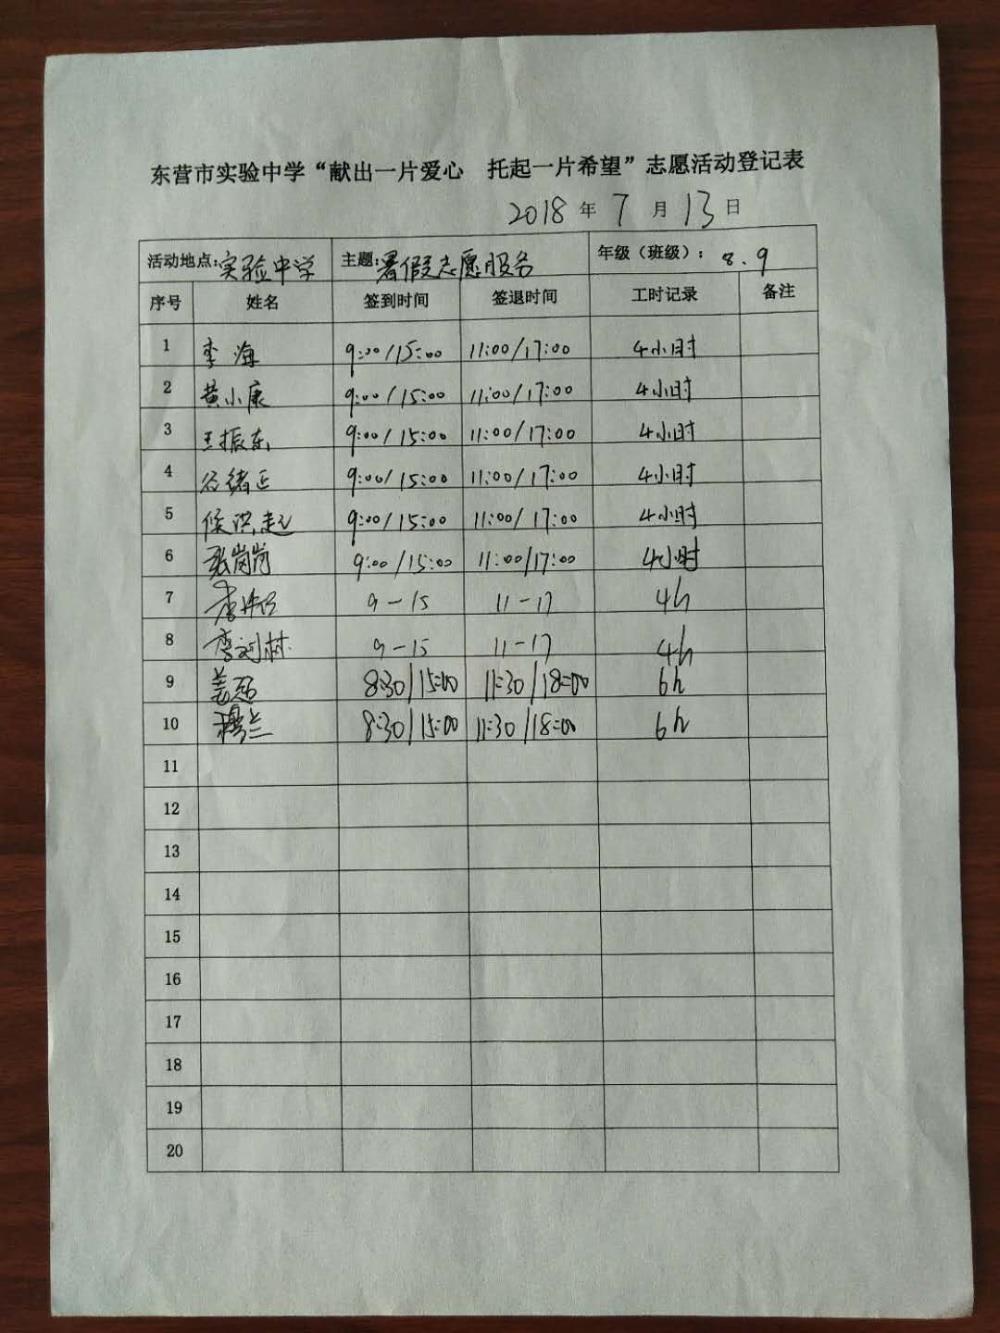 东营市实验中学“献出一片爱心 托起一片希望”志愿活动登记表
2018 年 7 月 13 日
活动地点:实验中学 主题:暑假志愿服务 年级（班级）: 8.9
序号 姓名 签到时间 签退时间 工时记录 备注
1 李海 9:00/15:00 11:00/17:00 4小时
2 黄小康 9:00/15:00 11:00/17:00 4小时
3 王振东 9:00/15:00 11:00/17:00 4小时
4 谷绪正 9:00/15:00 11:00/17:00 4小时
5 侯洪起 9:00/15:00 11:00/17:00 4小时
6 张岗岗 9:00/15:00 11:00/17:00 4小时
7 9-15 11-17 4h
8 李刘林 9-15 11-17 4h
9 8:30/15:00 11:30/18:00 6h
10 穆兰 8:30/15:00 11:30/18:00 6h
11
12
13
14
15
16
17
18
19
20